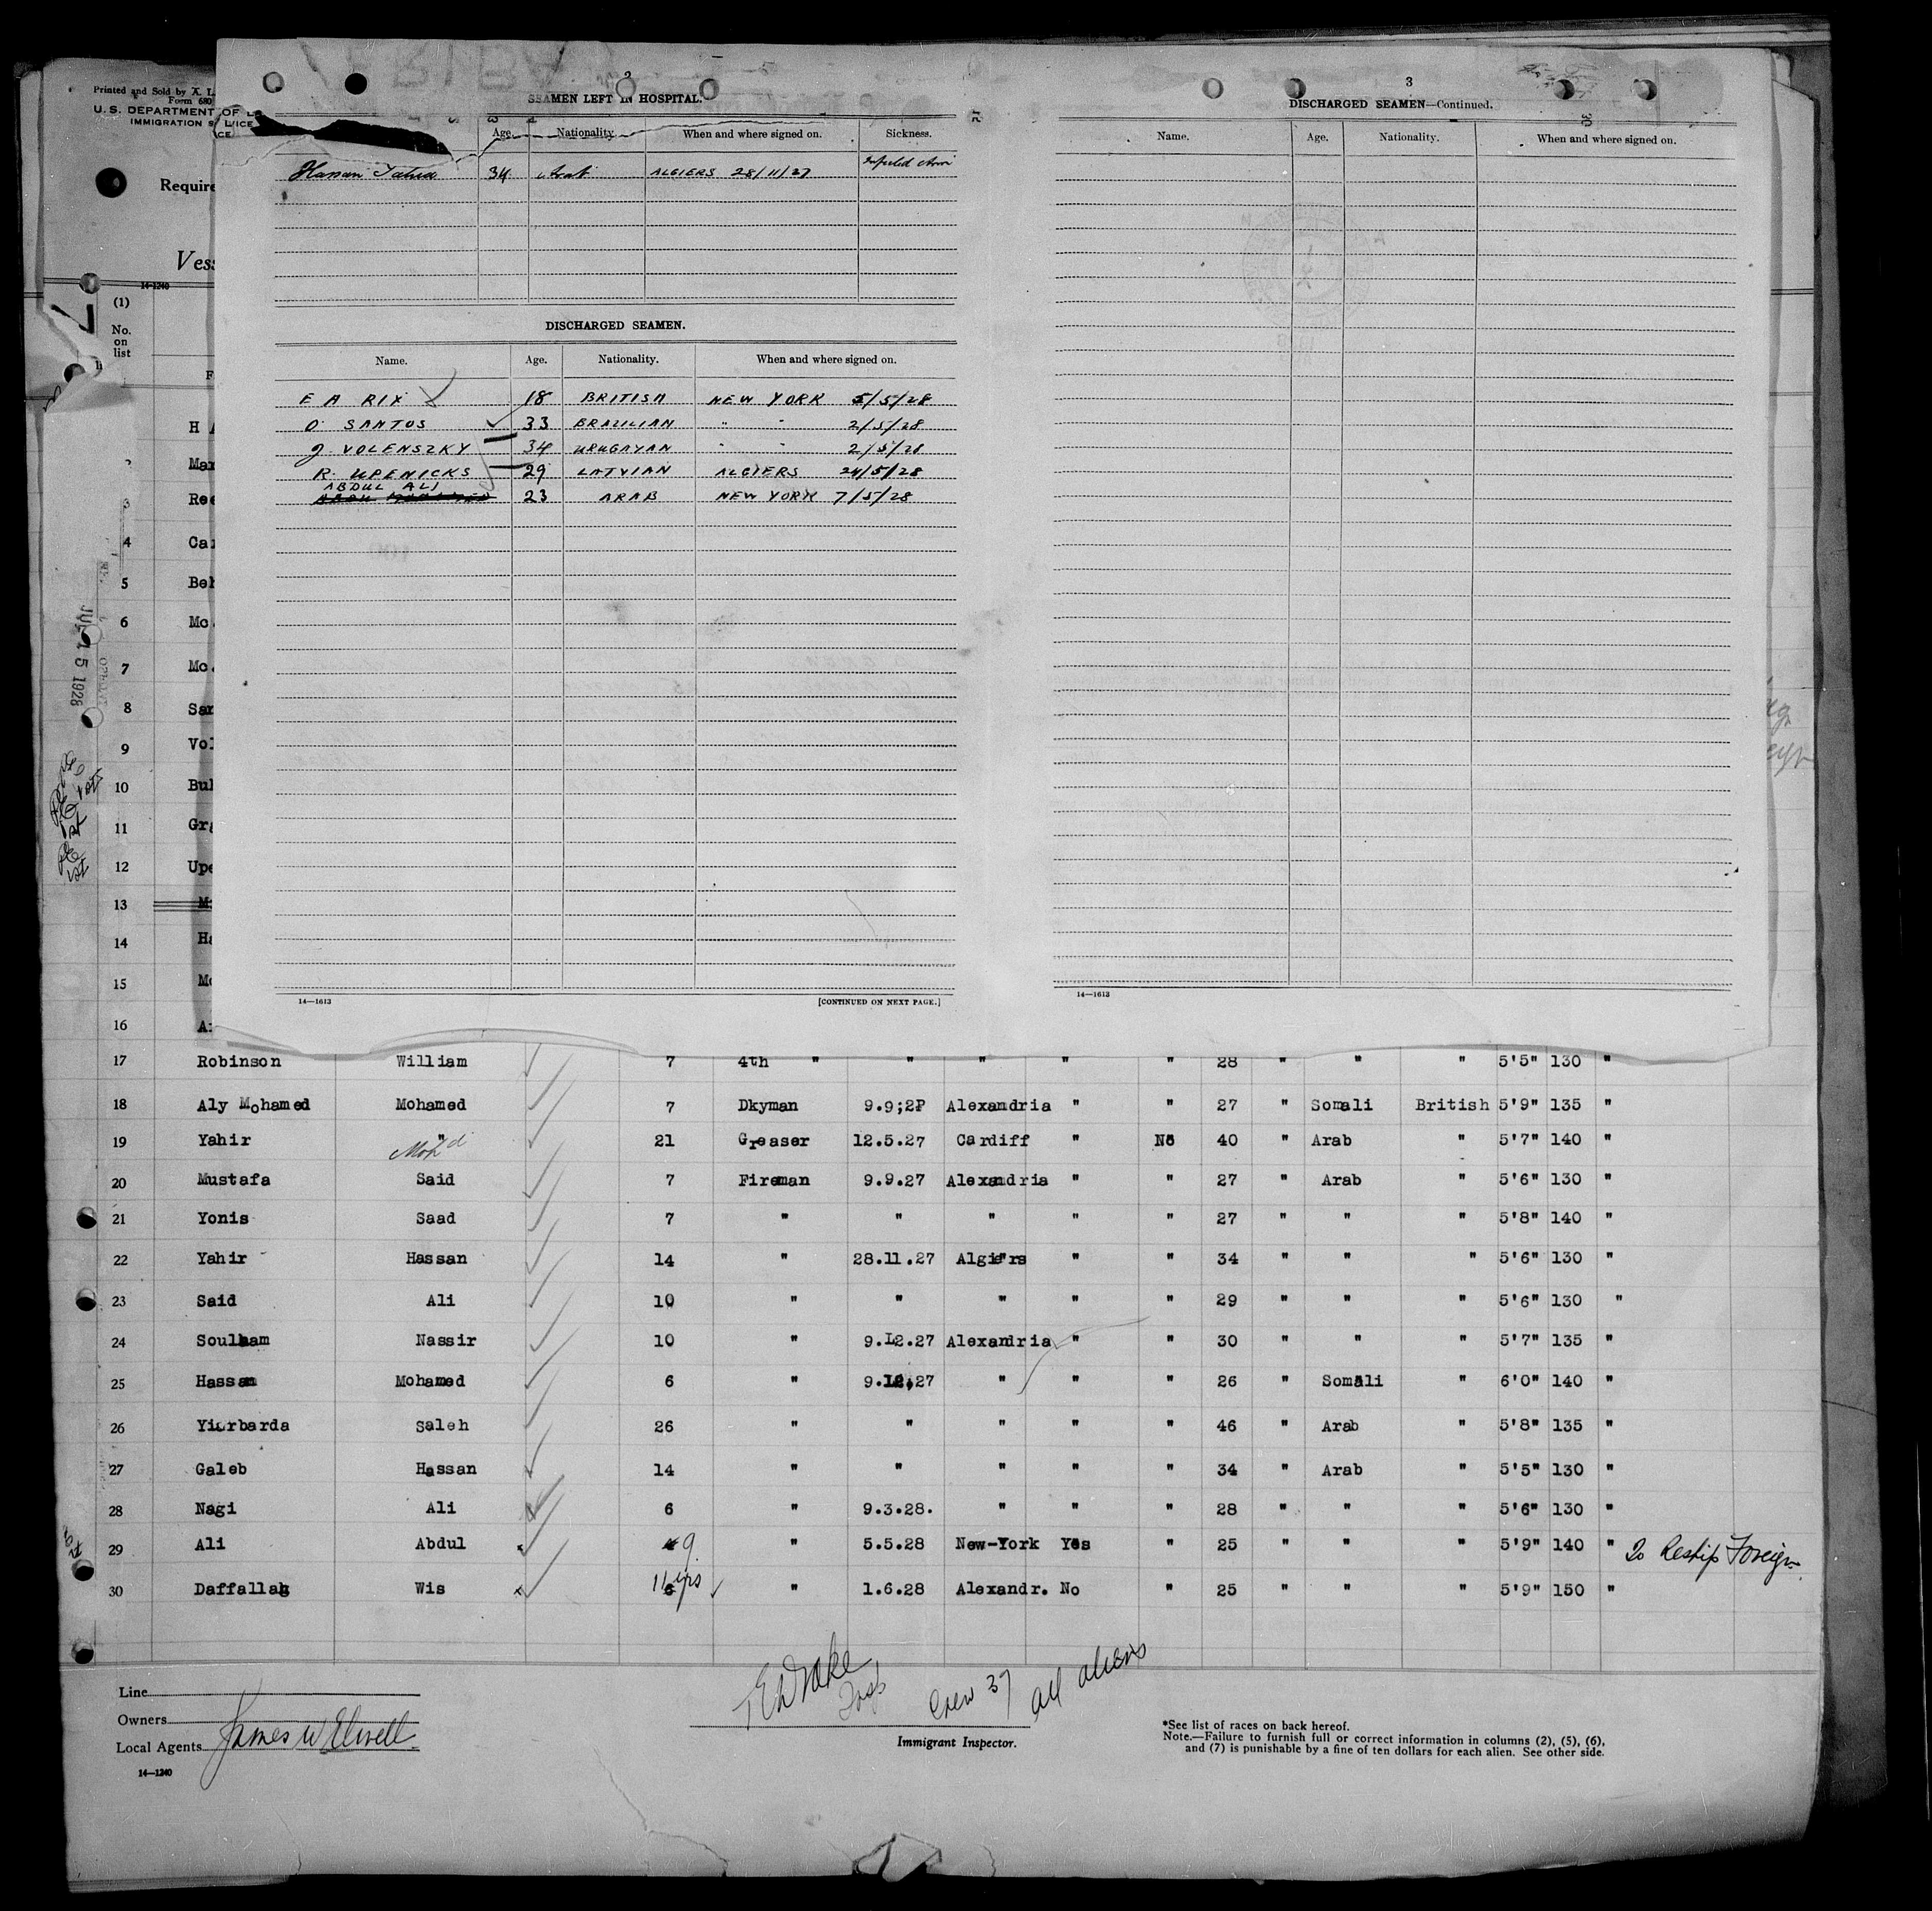 Printed and Sold by A. L.
Form 680
U.S. DEPARTMENT OF
IMMIGRATION
Require
Vess
14-1240
(1)
No.
on
list
2
SEAMEN LEFT IN HOSPITAL.
Age. Nationality. When and where signed on. Sickness.
Hassan 34 Arab ALGIERS 28/11/27 Infected Arm
DISCHARGED SEAMEN.
Name. Age. Nationality. When and where signed on.
E A RIX 18 BRITISH NEW YORK 5/5/28
O SANTOS 33 BRAZILIAN " " 2/5/28
J. VOLENSZKY 34 URUGAYAN " " 2/5/28
R. UPENICKS 29 LATVIAN ALGIERS 24/5/28
ABDUL ALI
23 ARAB NEW YORK 7/5/28
14—1613 [CONTINUED ON NEXT PAGE.]
3
DISCHARGED SEAMEN—Continued.
Name. Age. Nationality. When and where signed on.
14—1613
H
Mar
3 Ree
4 Car
5 Beh
6 Mc
7 Mc
8 San
9 Vol
10 Bul
11 Gra
12 Upe
13 M
14 Ha
15 Mo
16 A
15 1928
17 Robinson William 7 4th " " " " " 28 " " " 5'5" 130 "
18 Aly Mohamed Mohamed 7 Dkyman 9.9;2P Alexandria " " 27 " Somali British 5'9" 135 "
19 Yahir " Moh'd 21 Greaser 12.5.27 Cardiff " No 40 " Arab " 5'7" 140 "
20 Mustafa Said 7 Fireman 9.9.27 Alexandria " " 27 " Arab " 5'6" 130 "
21 Yonis Saad 7 " " " " " 27 " " " 5'8" 140 "
22 Yahir Hassan 14 " 28.11.27 Algiers " " 34 " " " 5'6" 130 "
23 Said Ali 10 " " " " " 29 " " " 5'6" 130 "
24 Soulham Nassir 10 " 9.12.27 Alexandria " " 30 " " " 5'7" 135 "
25 Hassan Mohamed 6 " 9.12.27 " " " 26 " Somali " 6'0" 140 "
26 Yiorbarda Saleh 26 " " " " " 46 " Arab " 5'8" 135 "
27 Galeb Hassan 14 " " " " " 34 " Arab " 5'5" 130 "
28 Nagi Ali 6 " 9.3.28. " " " 28 " " " 5'6" 130 "
29 Ali Abdul 9 " 5.5.28 New-York Yes " 25 " " " 5'9" 140 " To Reship Foreign
30 Daffallah Wis 11 yrs " 1.6.28 Alexandr. No " 25 " " " 5'9" 150 "
Line
Owners
Local Agents James W Elwell
14—1240
Crew 37 all aliens
Immigrant Inspector.
*See list of races on back hereof.
Note.—Failure to furnish full or correct information in columns (2), (5), (6),
and (7) is punishable by a fine of ten dollars for each alien. See other side.